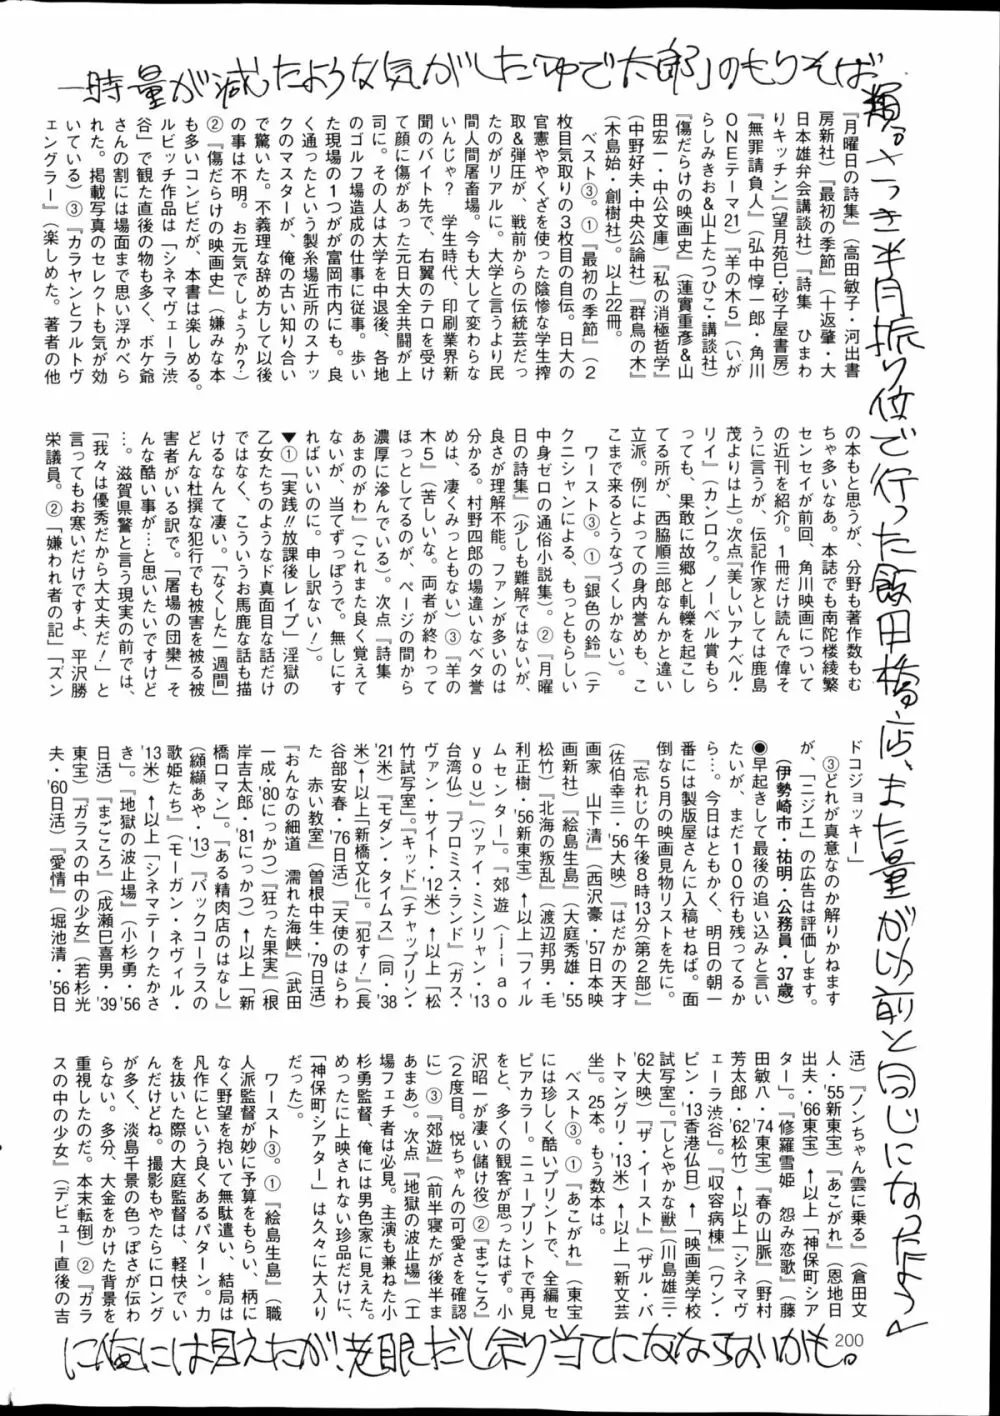 一時量が減じたような気がした「ゆで太郎」のもりそば
類。さっき半月振り位で行った飯田橋店、また量が以前と同じになったよう
に俺には見えたが、老眼だし余り当てにならないかも。
『月曜日の詩集』（高田敏子・河出書
房新社）『最初の季節』（十返肇・大
日本雄弁会講談社）『詩集　ひまわ
りキッチン』（望月苑巳・砂子屋書房）
『無罪請負人』（弘中惇一郎・角川
ＯＮＥテーマ21）『羊の木５』（いが
らしみきお＆山上たつひこ・講談社）
『傷だらけの映画史』（蓮實重彦＆山
田宏一・中公文庫）『私の消極哲学』
（中野好夫・中央公論社）『群鳥の木』
（木島始・創樹社）。以上22冊。
　ベスト③。①『最初の季節』（２
枚目気取りの３枚目の自伝。日大の
官憲ややくざを使った陰惨な学生搾
取＆弾圧が、戦前からの伝統芸だっ
たのがリアルに。大学と言うより民
間人間屠畜場。今も大して変わらな
いんじゃ？　学生時代、印刷業界新
聞のバイト先で、右翼のテロを受け
て顔に傷があった元日大全共闘が上
司に。その人は大学を中退後、各地
のゴルフ場造成の仕事に従事。歩い
た現場の１つがが富岡市内にも。良
く通ったという製糸場近所のスナッ
クのマスターが、俺の古い知り合い
で驚いた。不義理な辞め方して以後
の事は不明。お元気でしょうか？）
②『傷だらけの映画史』（嫌みな本
も多いコンビだが、本書は楽しめる。
ルビッチ作品は「シネマヴェーラ渋
谷」で観た直後の物も多く、ボケ爺
さんの割には場面まで思い浮かべら
れた。掲載写真のセレクトも気が効
いている）③『カラヤンとフルトヴ
ェングラー』（楽しめた。著者の他
の本もと思うが、分野も著作数もむ
ちゃ多いなあ。本誌でも南陀楼綾繁
センセイが前回、角川映画について
の近刊を紹介。１冊だけ読んで偉そ
うに言うが、伝記作家としては鹿島
茂よりは上）。次点『美しいアナベル・
リイ』（カンロク。ノーベル賞もら
っても、果敢に故郷と軋轢を起こし
てる所が、西脇順三郎なんかと違い
立派。例によっての身内誉めも、こ
こまで来るとうなづくしかない）。
　ワースト③。①『銀色の鈴』（テ
クニシャンによる、もっともらしい
中身ゼロの通俗小説集）。②『月曜
日の詩集』（少しも難解ではないが、
良さが理解不能。ファンが多いのは
分かる。村野四郎の場違いなベタ誉
めは、凄くみっともない）③『羊の
木５』（苦しいな。両者が終わって
ほっとしてるのが、ページの間から
濃厚に滲んでいる）。次点『詩集　
あまのがわ』（これまた良く覚えて
ないが、当てずっぽうで。無しにす
ればいいのに。申し訳ない！）。
▼①「実践!!放課後レイプ」淫獄の
乙女たちのようなド真面目な話だけ
ではなく、こういうお馬鹿な話も描
けるなんて凄い。「なくした一週間」
どんな杜撰な犯行でも被害を被る被
害者がいる訳で。「屠場の団欒」そ
んな酷い事が…と思いたいですけど
…。滋賀県警と言う現実の前では、
「我々は優秀だから大丈夫だ！」と
言ってもお寒いだけですよ、平沢勝
栄議員。②「嫌われ者の記」「ズン
ドコジョッキー」
　③どれが真意なのか解りかねます
が、「ニジエ」の広告は評価します。
（伊勢崎市・祐明・公務員・37歳）
●早起きして最後の追い込みと言い
たいが、まだ１００行も残ってるか
ら…。今日はともかく、明日の朝一
番には製版屋さんに入稿せねば。面
倒な５月の映画見物リストを先に。
『忘れじの午後８時13分（第２部）』
（佐伯幸三・'56大映）『はだかの天才
画家　山下清』（西沢豪・'57日本映
画新社）『絵島生島』（大庭秀雄・'55
松竹）『北海の叛乱』（渡辺邦男・毛
利正樹・'56新東宝）↑以上「フィル
ムセンター」。『郊遊（ｊｉａｏ　
ｙｏｕ）』（ツァイ・ミンリャン・'13
台湾仏）『プロミス・ランド』（ガス・
ヴァン・サイト・'12米）↑以上「松
竹試写室」。『キッド』（チャップリン・
'21米）『モダン・タイムス』（同・'38
米）↑以上「新橋文化」。『犯す！』（長
谷部安春・'76日活）『天使のはらわ
た　赤い教室』（曽根中生・'79日活）
『おんなの細道　濡れた海峡』（武田
一成・'80にっかつ）『狂った果実』（根
岸吉太郎・'81にっかつ）↑以上「新
橋ロマン」。『ある精肉店のはなし』
（纐纈あや・'13）『バックコーラスの
歌姫たち』（モーガン・ネヴィル・
'13米）↑以上「シネマテークたかさ
き」。『地獄の波止場』（小杉勇・'56
日活）『まごころ』（成瀬巳喜男・'39
東宝）『ガラスの中の少女』（若杉光
夫・'60日活）『愛情』（堀池清・'56日
活）『ノンちゃん雲に乗る』（倉田文
人・'55新東宝）『あこがれ』（恩地日
出夫・'66東宝）↑以上「神保町シア
ター」。『修羅雪姫　怨み恋歌』（藤
田敏八・'74東宝）『春の山脈』（野村
芳太郎・'62松竹）↑以上「シネマヴ
ェーラ渋谷」。『収容病棟』（ワン・
ビン・'13香港仏日）↑「映画美学校
試写室」。『しとやかな獣』（川島雄三・
'62大映）『ザ・イースト』（ザル・バ
トマングリ・'13米）↑以上「新文芸
坐」。25本。もう数本は。
　ベスト③。①『あこがれ』（東宝
には珍しく酷いプリントで、全編セ
ピアカラー。ニュープリントで再見
をと、多くの観客が思ったはず。小
沢昭一が凄い儲け役）②『まごころ』
（２度目。悦ちゃんの可愛さを確認
に）③『郊遊』（前半寝たが後半ま
あまあ）。次点『地獄の波止場』（工
場フェチ者は必見。主演も兼ねた小
杉勇監督、俺には男色家に見えた。
めったに上映されない珍品だけに、
「神保町シアター」は久々に大入り
だった）。
　ワースト③。①『絵島生島』（職
人派監督が妙に予算をもらい、柄に
なく野望を抱いて無駄遣い、結局は
凡作にという良くあるパターン。力
を抜いた際の大庭監督は、軽快でい
んだけどね。撮影もやたらにロング
が多く、淡島千景の色っぽさが伝わ
らない。多分、大金をかけた背景を
重視したのだ。本末転倒）②『ガラ
スの中の少女』（デビュー直後の吉
200